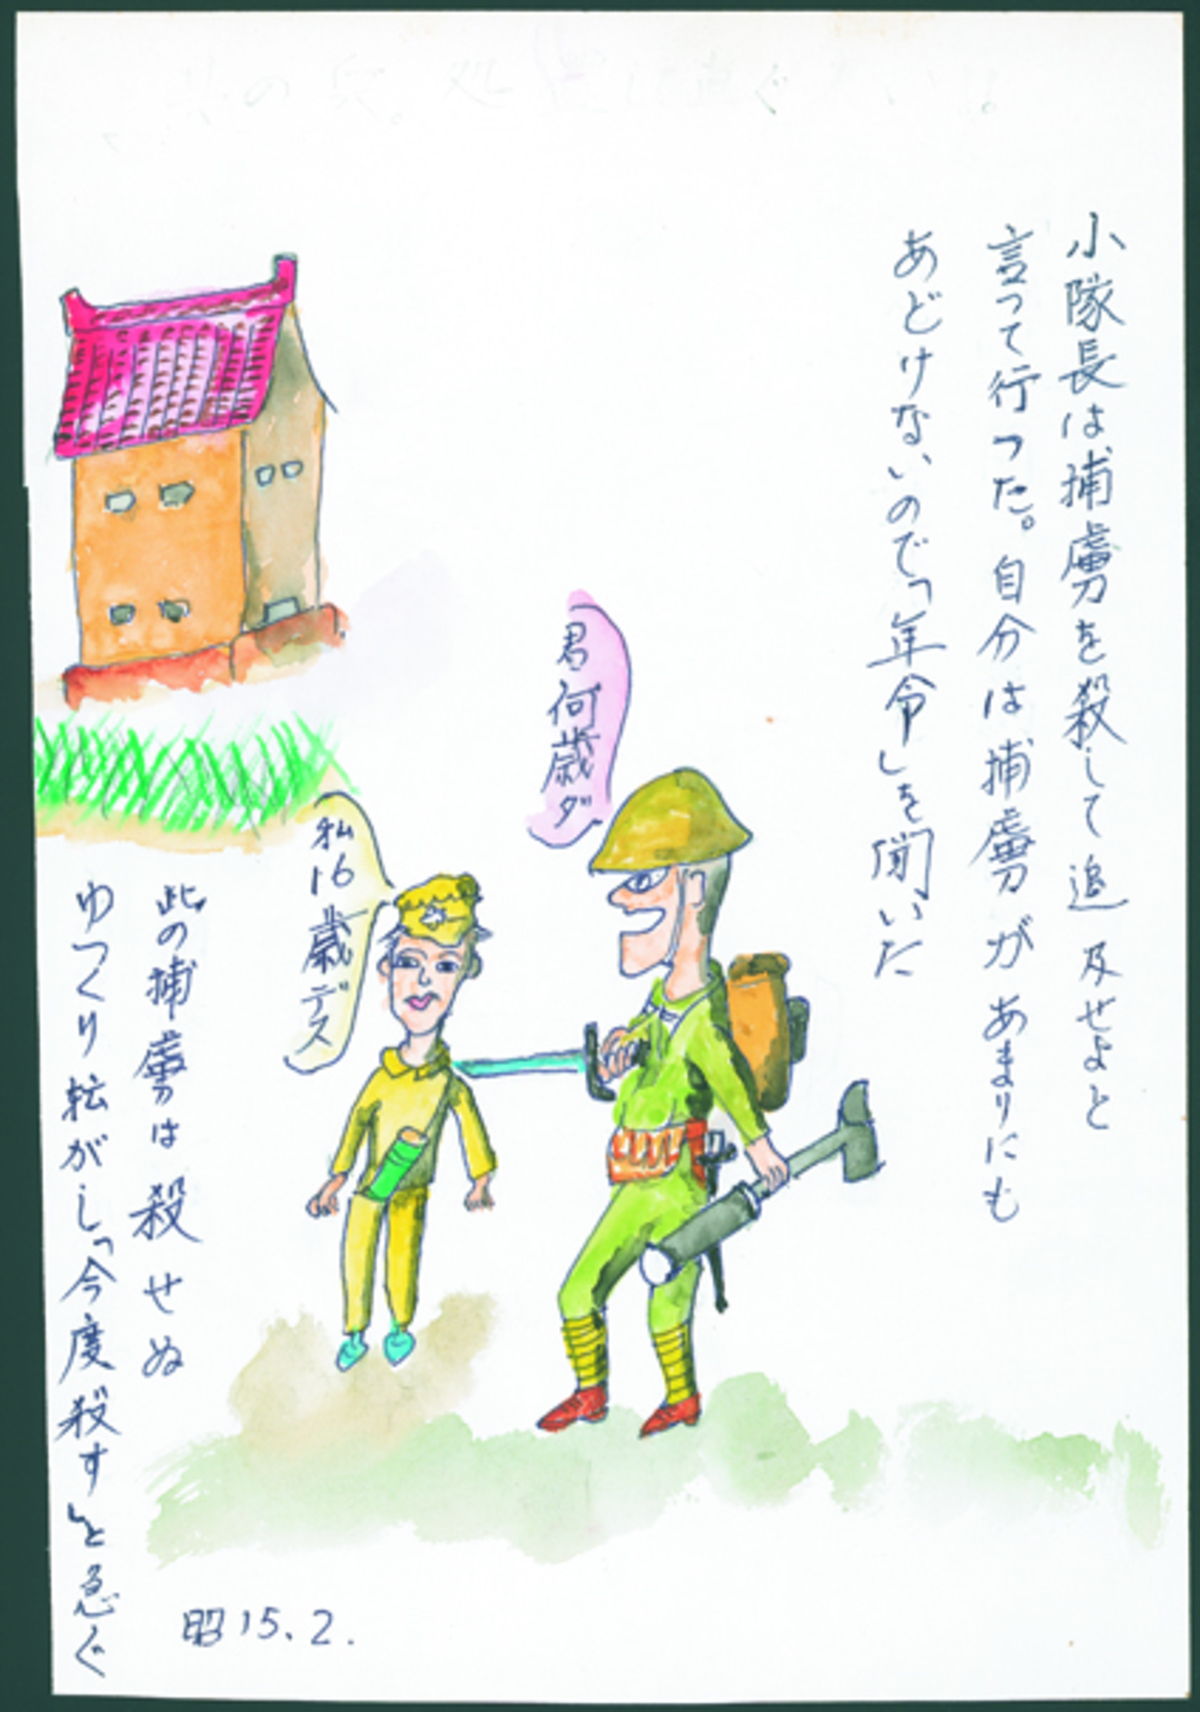 小隊長は捕虜を殺して追及せよと
言って行った。自分は捕虜があまりにも
あどけないので「年令」を聞いた
君何歳ダ
私16歳デス
此の捕虜は殺せぬ
ゆっくり転がし「今度殺す」と急ぐ
昭15.2.